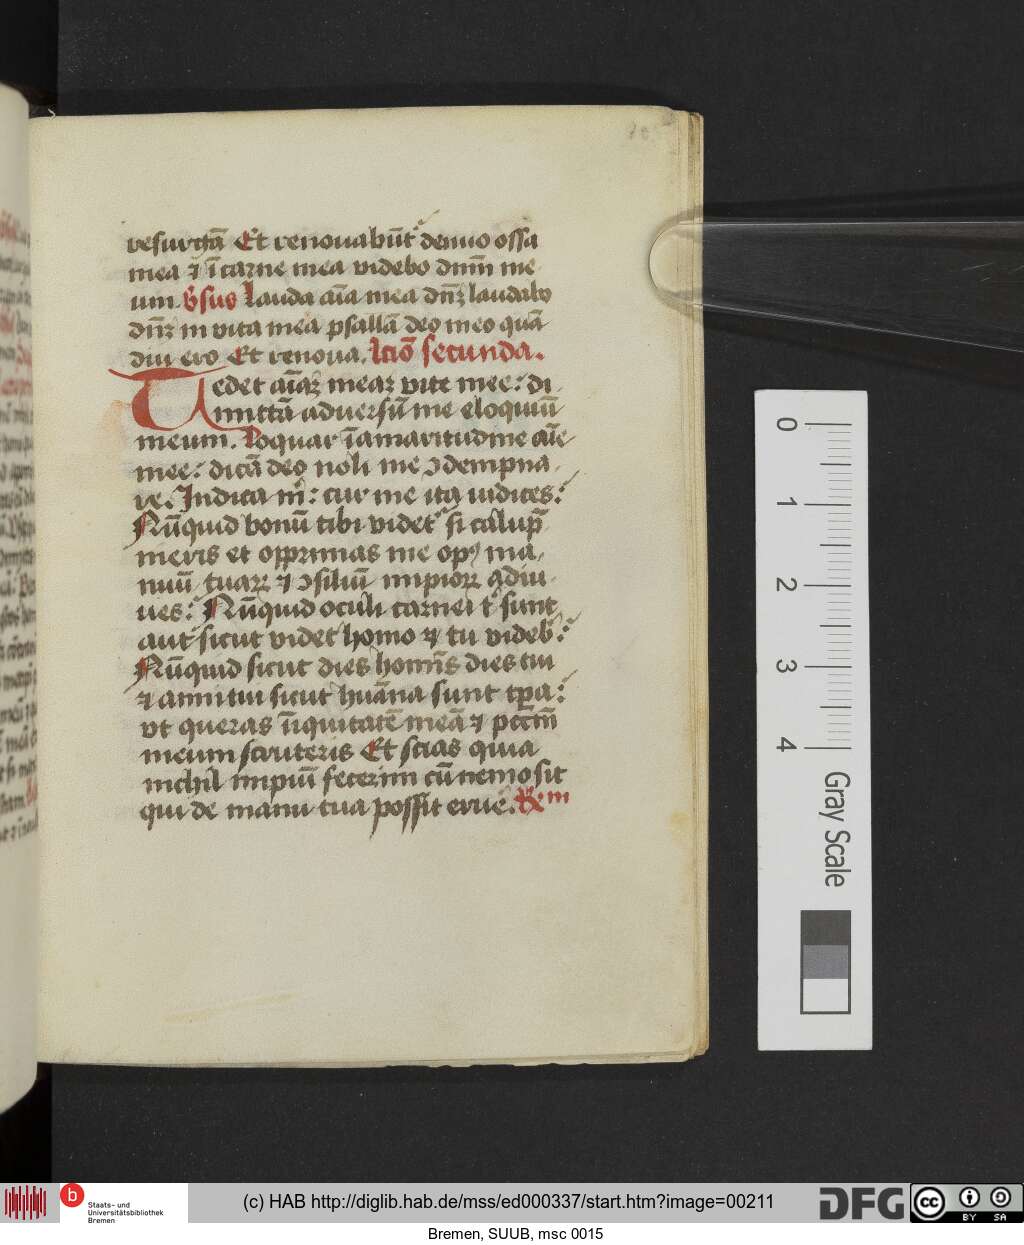 resurrctã Et renouabũt᷑ denuo ossa
mea ⁊ ĩ carne mea videbo dnm̃ me
um. v̉sus Lauda aĩa mea dñꝫ laudabo
dñꝫ in vita mea psallã deo meo quã
diu ero Et renoua. Lctio᷒ secunda.
Tedet aĩaꝫ meaꝫ vite mee: di,
mittã aduersũ me eloquiũ
meum. Loquar ĩ amaritudine aĩe
mee: dicã deo noli me ↄdempna,
re. Indica m̃: cur me ita iudices:
Nũquid bonũ tibi videt᷑ si calūp̃
meris et opprimas me opꝰ ma,
nuũ tuaꝝ ⁊ ↄsiliũ impioꝝ adiu,
ues: Nũquid oculi carnei t᷑ sunt
aut᷑ sicut videt homo ⁊ tu videb᷑:
Nũquid sicut dies hom̃s dies tui
⁊ anni tui sicut huãna sunt tp̃a:
vt queras ĩiquitatẽ meã ⁊ pctm̃
meum scruteris Et scias quia
nichil impiũ fecerim cũ nemo sit
qui de manu tua possit erue᷑. R̃m
0
1
2
3
4
Gray Scale
b Staats- und
Universitätsbibliothek
Bremen
(c) HAB http://diglib.hab.de/mss/ed000337/start.htm?image=00211
DFG
cc BY SA
Bremen, SUUB, msc 0015